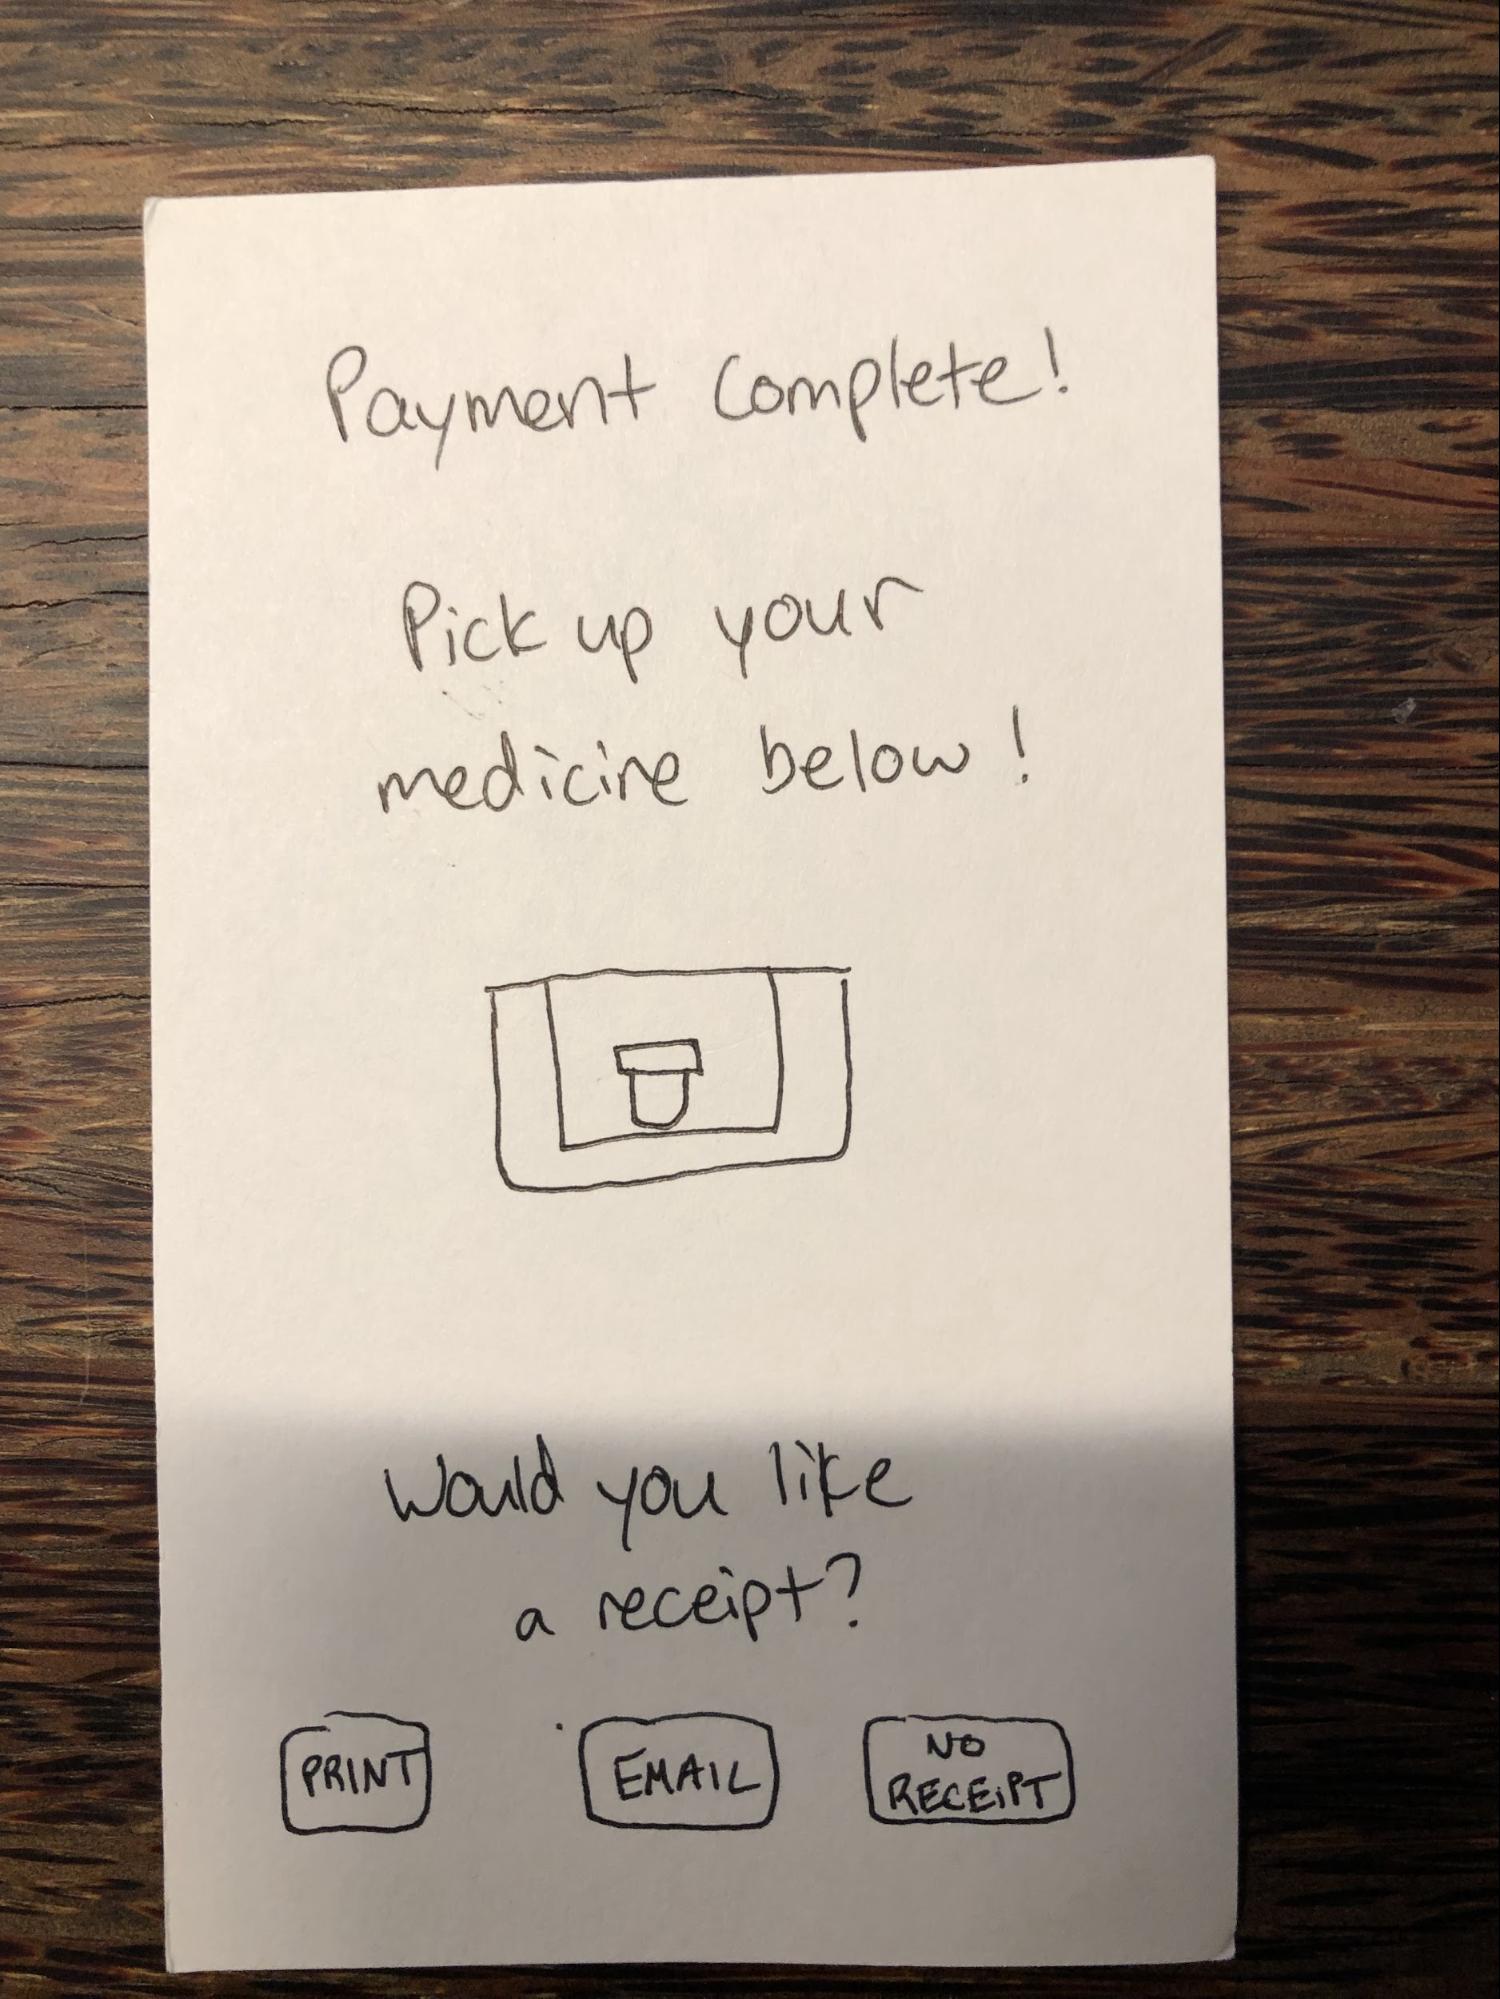 Payment Complete!
Pick up your
medicine below!
Would you like
a receipt?
PRINT
EMAIL
NO
RECEIPT